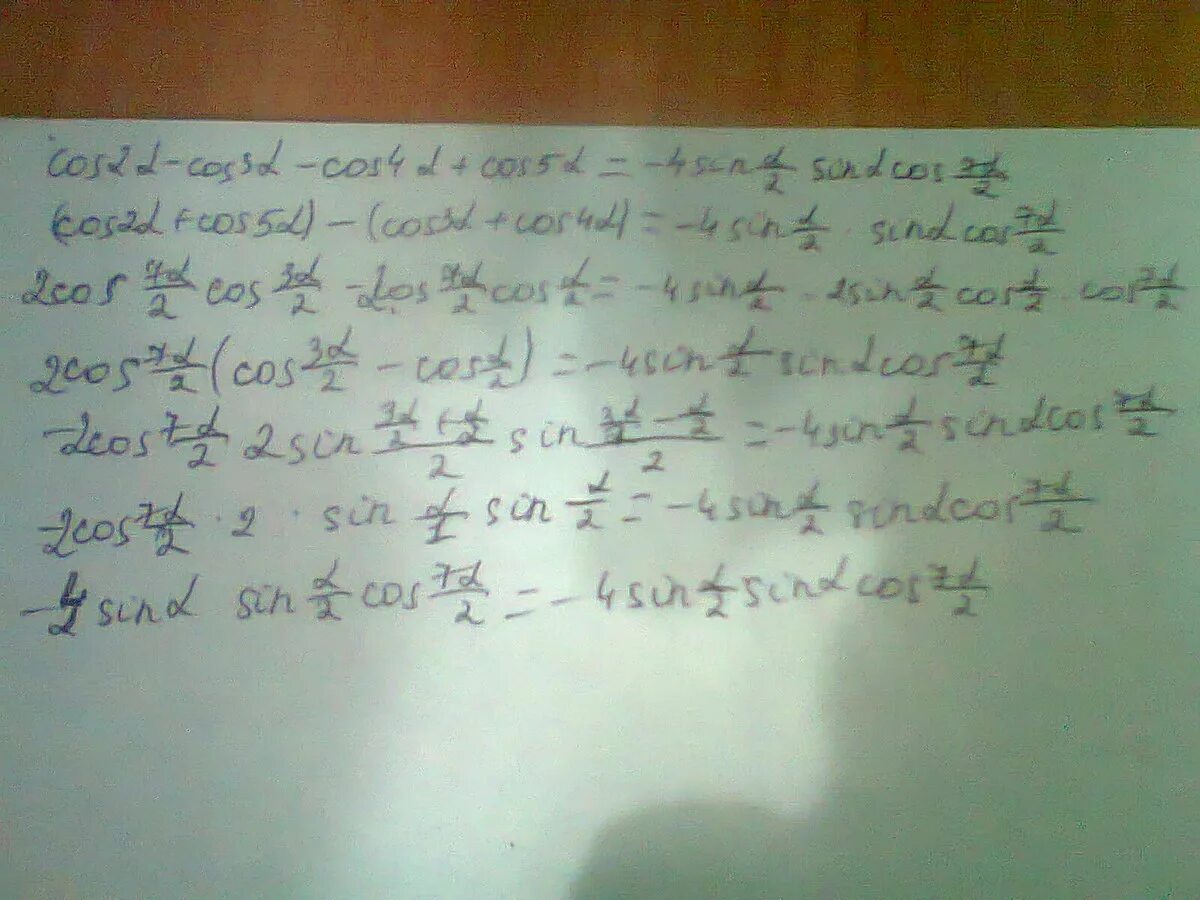 cos2α-cos3α-cos4α+cos5α=-4sin α/2 sinα cos 7α/2
(cos2α+cos5α)-(cos3α+cos4α)=-4sin α/2 · sinα cos 7α/2
2cos 7α/2 cos 3α/2 -2cos 7α/2 cos α/2 = -4sin α/2 · 2sin α/2 cos α/2 · cos 7α/2
2cos 7α/2 (cos 3α/2 - cos α/2) = -4sin α/2 sinα cos 7α/2
-2cos 7α/2 2sin (3α/2 + α/2)/2 sin (3α/2 - α/2)/2 = -4sin α/2 sinα cos 7α/2
-2cos 7α/2 · 2 · sin α/1 sin α/2 = -4sin α/2 sinα cos 7α/2
-4 sinα sin α/2 cos 7α/2 = -4sin α/2 sinα cos 7α/2